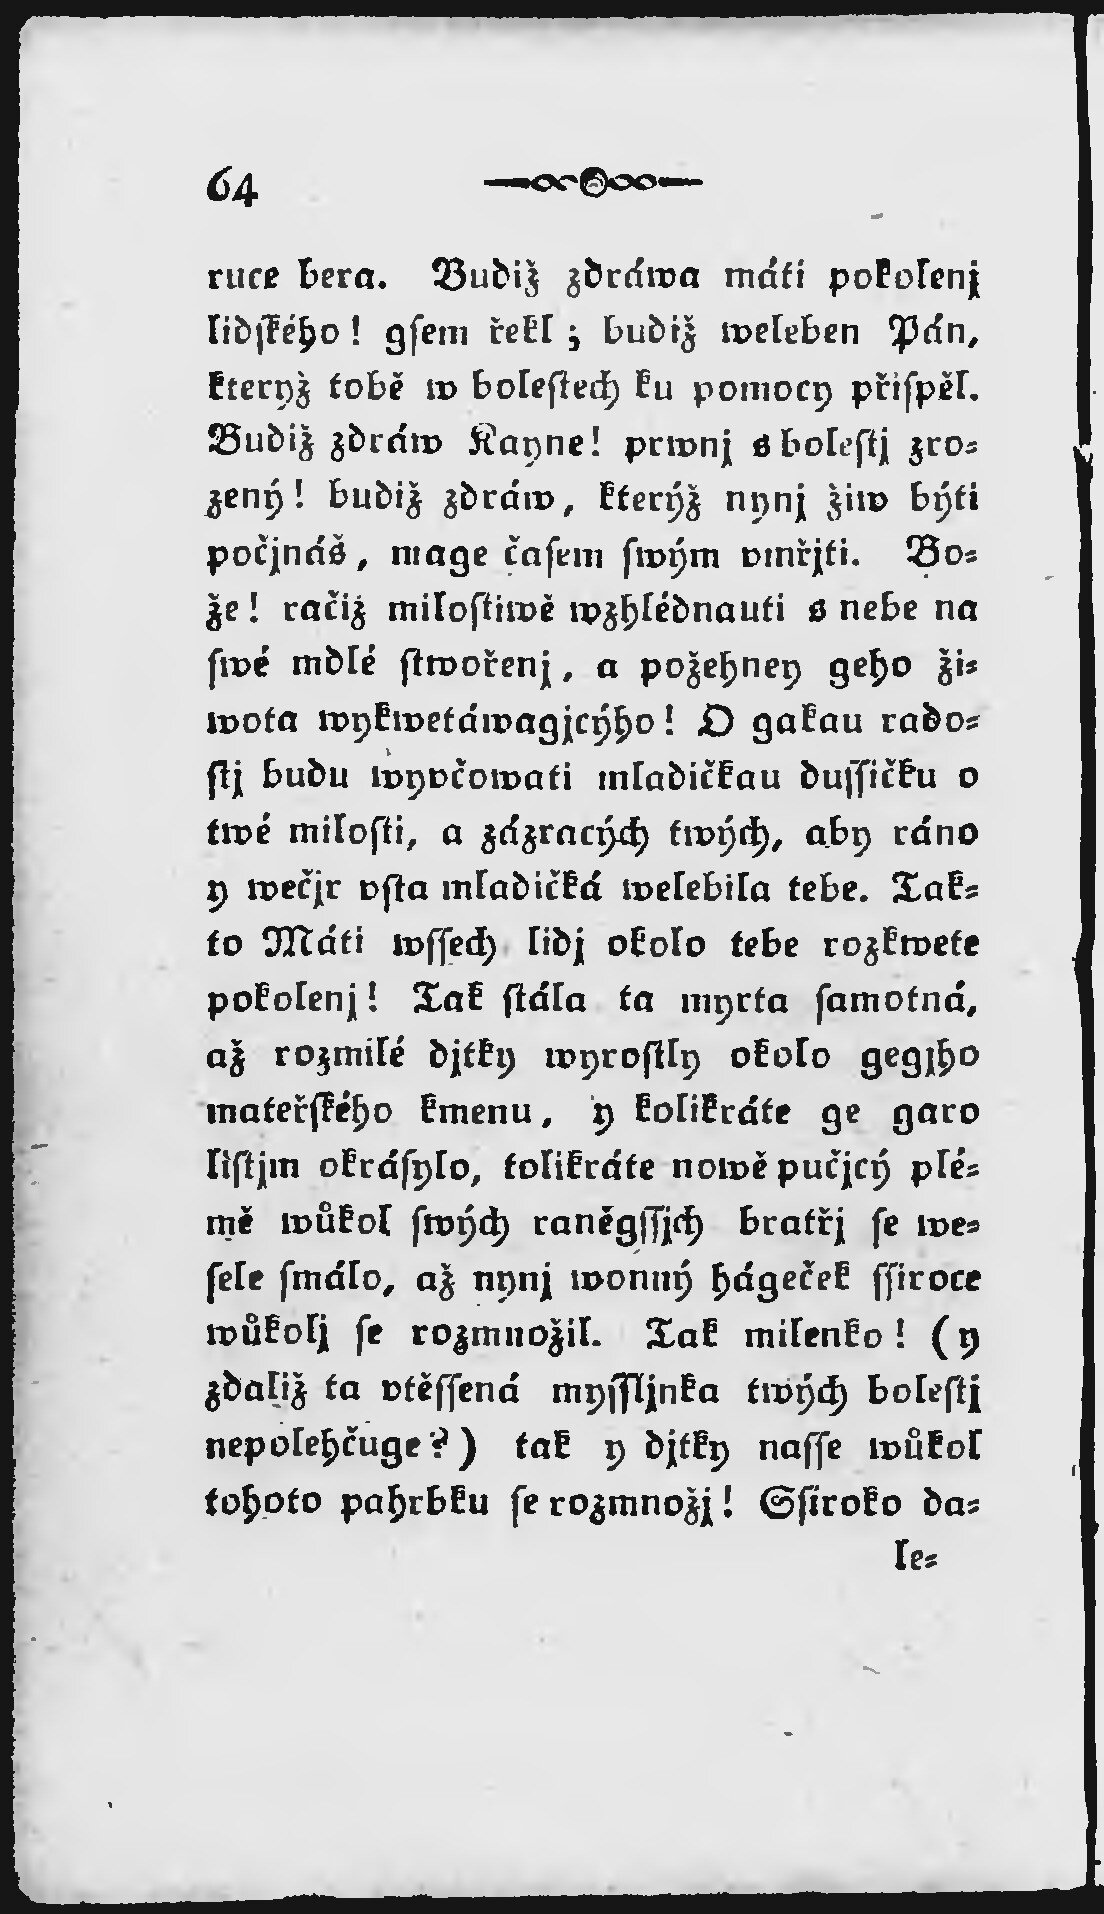 64
ruce bera. Budiž zdráwa máti pokolenj
lidſkého! gſem řekl; budiž weleben Pán,
kterýž tobě w boleſtech ku pomocy přiſpěl.
Budiž zdráw Kayne! prwnj s boleſtj zro⸗
zený! budiž zdráw, kterýž nynj žiw býti
počjnáš, mage čaſem ſwým vmřjti. Bo⸗
že! račiž miloſtiwě wzhlédnauti s nebe na
ſwé mdlé ſtwořenj, a požehney geho ži⸗
wota wykwetáwagjcýho! O gakau rado⸗
ſtj budu wyvčowati mladičkau duſſičku o
twé miloſti, a zázracých twých, aby ráno
y wečjr vſta mladičká welebila tebe. Tak⸗
to Máti wſſech lidj okolo tebe rozkwete
pokolenj! Tak ſtála ta myrta ſamotná,
až rozmilé djtky wyroſtly okolo gegjho
mateřſkého kmenu, y kolikráte ge garo
liſtjm okráſylo, tolikráte nowě pučjcý plé⸗
mě wůkol ſwých raněgſſjch bratřj ſe we⸗
ſele ſmálo, až nynj wonný hágeček ſſiroce
wůkolj ſe rozmnožil. Tak milenko! (y
zdaliž ta vtěſſená myſſljnka twých boleſtj
nepolehčuge?) tak y djtky naſſe wůkol
tohoto pahrbku ſe rozmnožj! Sſiroko da⸗
le⸗